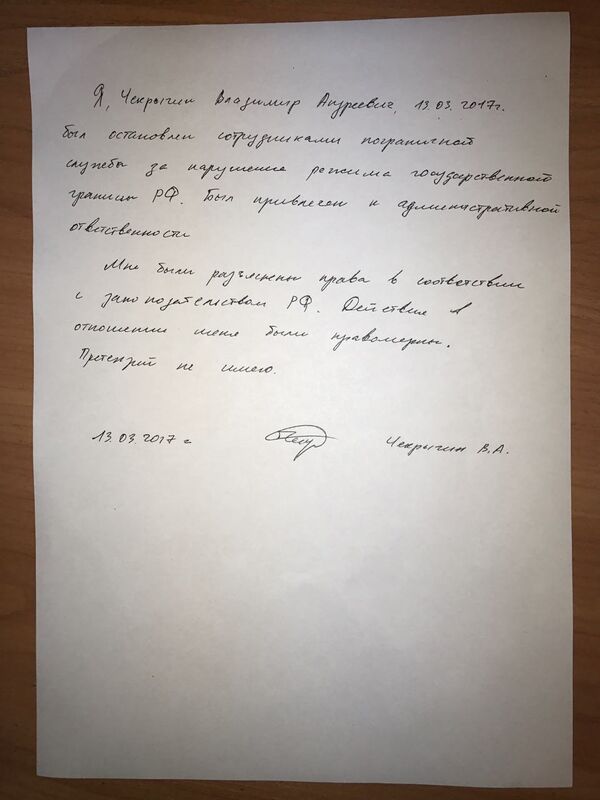 Я, Чекрыгин Владимир Андреевич, 13.03.2017г.
был остановлен сотрудниками пограничной
службы за нарушение режима государственной
границы РФ. Был привлечен к административной
ответственности
Мне были разъяснены права в соответствии
с законодательством РФ. Действия в
отношении меня были правомерны.
Претензий не имею.
13.03.2017 г Чекрыгин В.А.